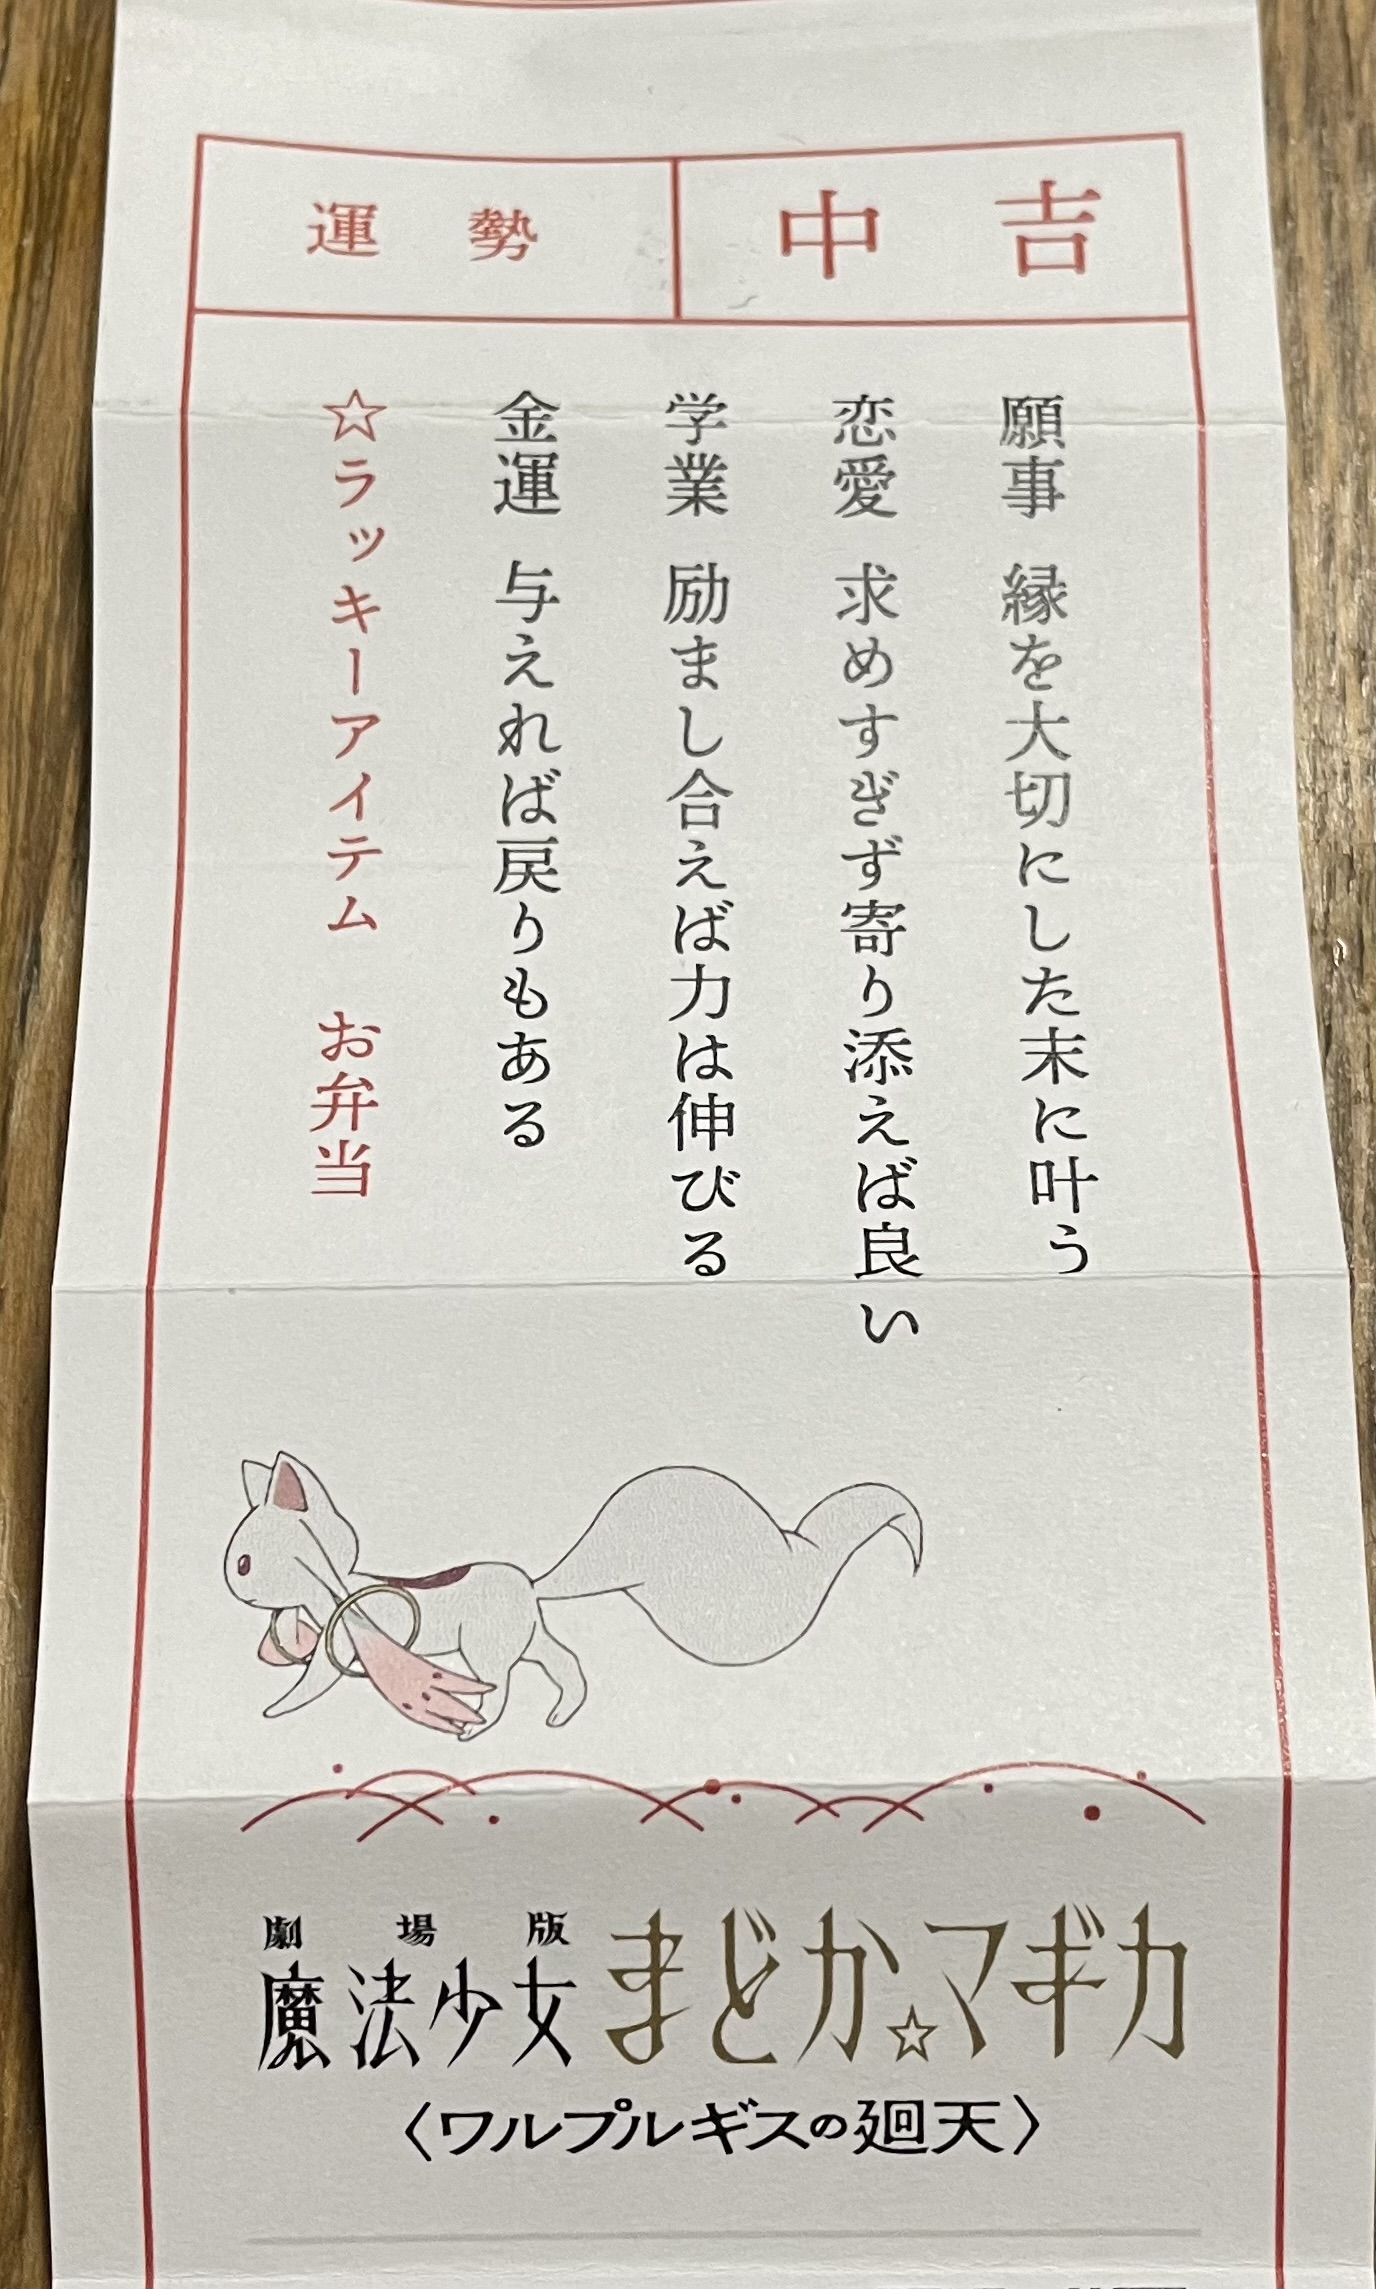 運勢
中吉
願事 縁を大切にした末に叶う
恋愛 求めすぎず寄り添えば良い
学業 励まし合えば力は伸びる
金運 与えれば戻りもある
☆ラッキーアイテム お弁当
劇場版
魔法少女まどか☆マギカ
〈ワルプルギスの廻天〉